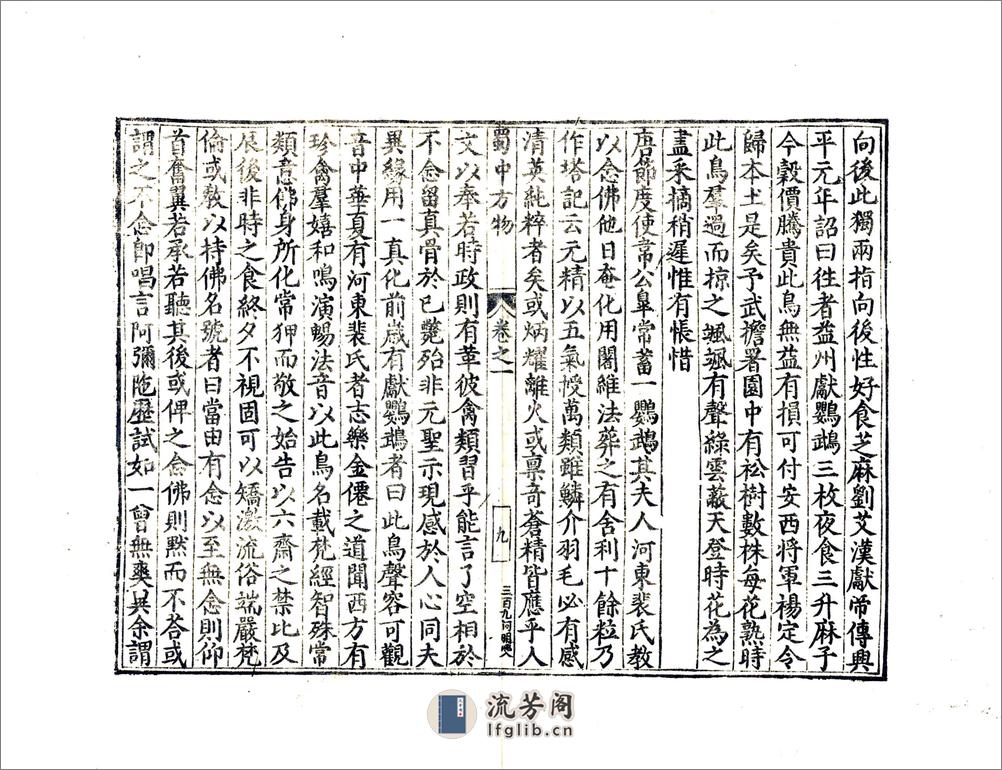 向後此獨兩指向後性好食芝麻劉艾漢獻帝傳興
平元年詔曰往者益州獻鸚鵡三枚夜食三升麻子
今穀價騰貴此鳥無益有損可付安西將軍楊定令
歸本土是矣予武擔署園中有松樹數株每花熟時
此鳥羣過而掠之颯颯有聲綠雲蔽天登時花為之
盡采摘稍遲惟有帳惜
唐節度使韋公臯常蓄一鸚鵡其夫人河東裴氏教
以念佛他日奄化用闍維法葬之有舍利十餘粒乃
作塔記云元精以五氣授萬類雖鱗介羽毛必有感
清英純粹者矣或炳耀離火或禀奇蒼精皆應乎人
蜀中方物 卷之一 九
文以奉若時政則有革彼禽類習乎能言了空相於
不念留真骨於已斃殆非元聖示現感於人心同夫
異緣用一真化前歳有獻鸚鵡者曰此鳥聲容可觀
音中華夏有河東裴氏者志樂金僊之道聞西方有
珍禽羣嬉和鳴演暢法音以此鳥名載梵經智殊常
類意佛身所化常狎而敬之始告以六齋之禁比及
辰後非時之食終夕不視固可以矯激流俗端嚴梵
倫或敎以持佛名號者曰當由有念以至無念則仰
首奮翼若承若聽其後或俾之念佛則默而不答或
謂之不念即唱言阿彌陁歷試如一曾無爽異余謂
流芳阁
lfglib.cn